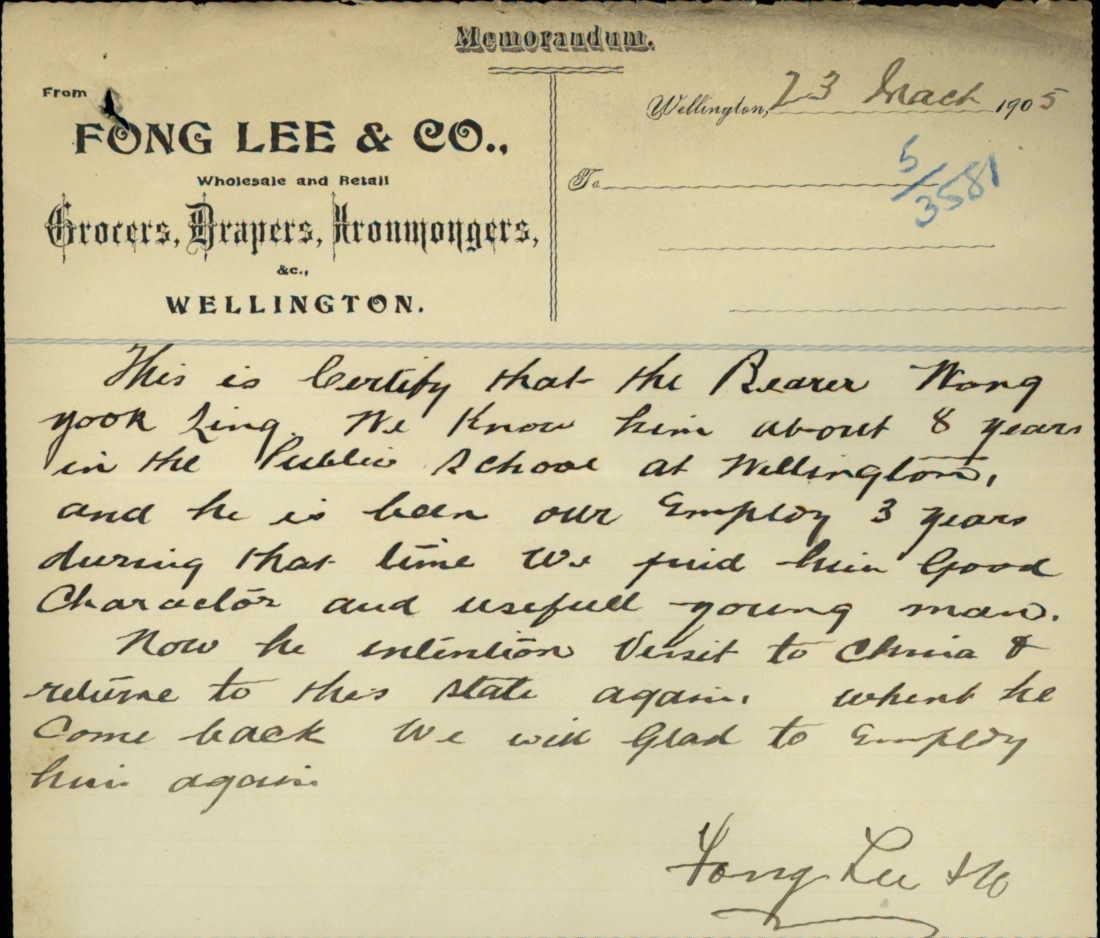 Memorandum.
From
FONG LEE & CO.,
Wholesale and Retail
Grocers, Drapers, Ironmongers,
&c.,
WELLINGTON.
Wellington, 23 Mach 1905
To
5/3581
This is Certify that the Bearer Wong
yook Ling. We Know him about 8 years
in the Public School at Wellington,
and he is been our Employ 3 years
during that time We find him Good
Charactor and usefull young man.
Now he intention Visit to China &
returne to this state again. whent he
Come back We will Glad to Employ
him again
Fong Lee & Co